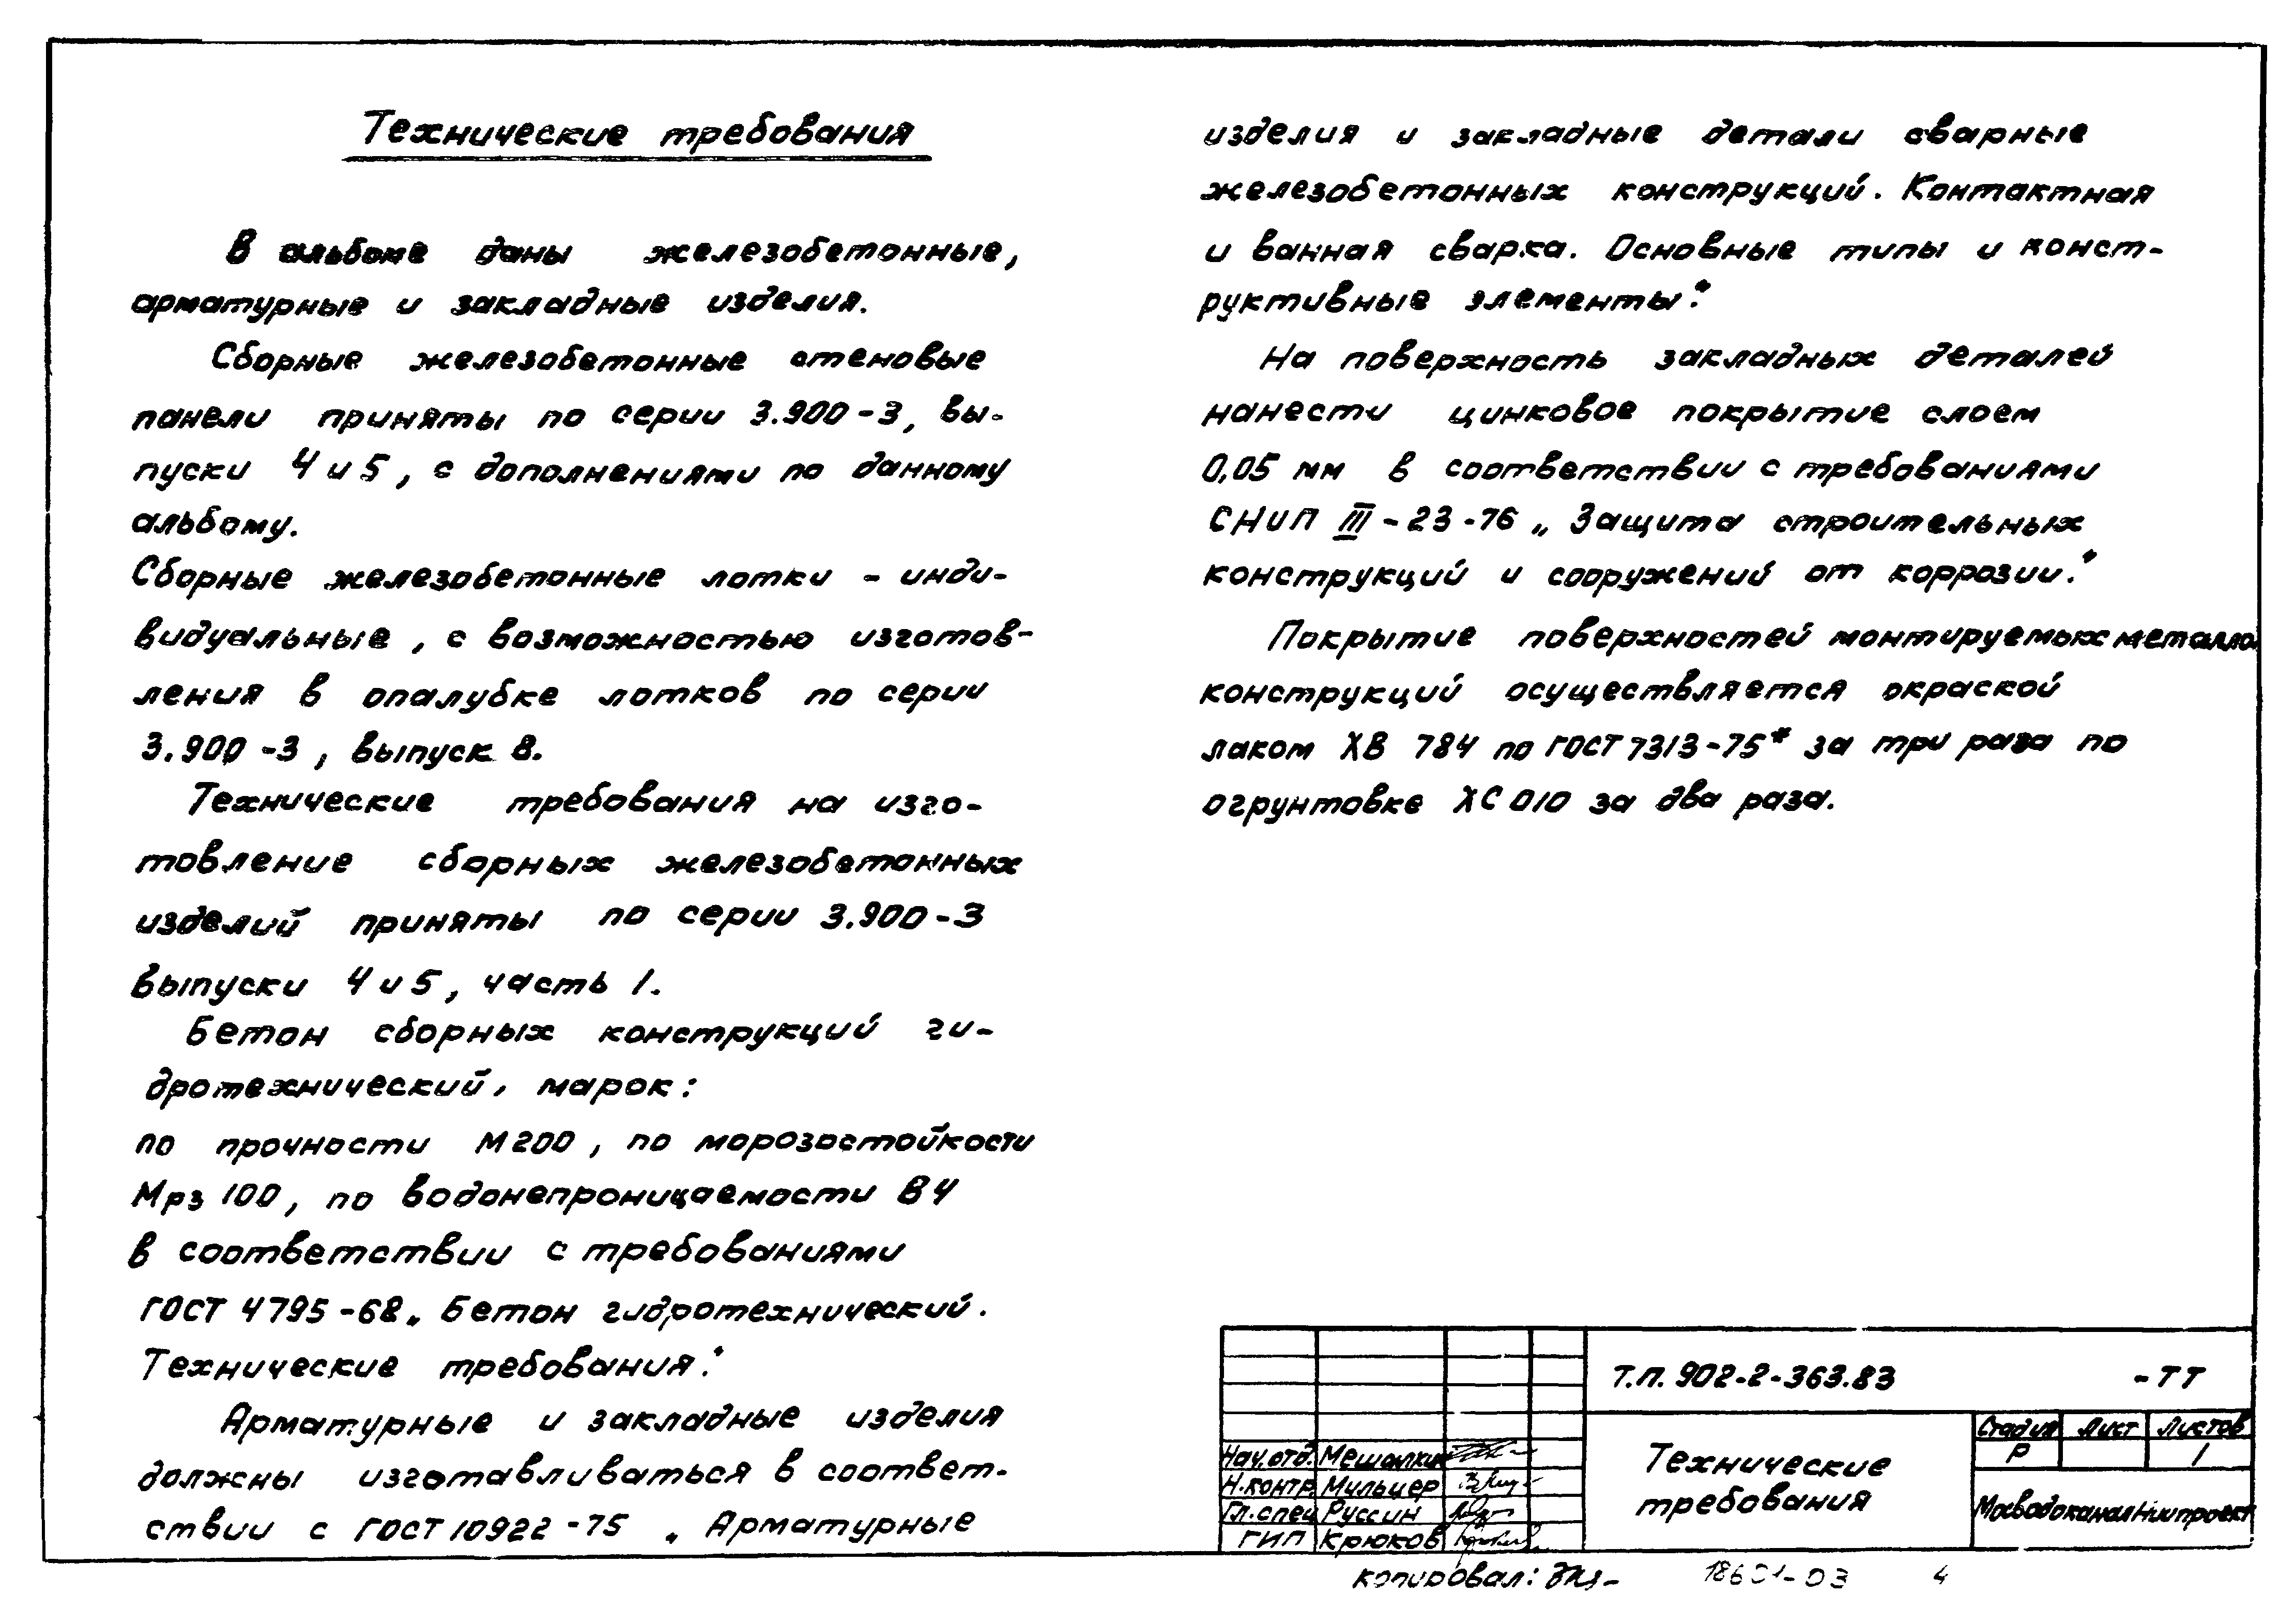 Технические требования
В альбоме даны железобетонные,
арматурные и закладные изделия.
Сборные железобетонные стеновые
панели приняты по серии 3.900-3, вы-
пуски 4 и 5, с дополнениями по данному
альбому.
Сборные железобетонные лотки - инди-
видуальные, с возможностью изготов-
ления в опалубке лотков по серии
3.900-3, выпуск 8.
Технические требования на изго-
товление сборных железобетонных
изделий приняты по серии 3.900-3
выпуски 4 и 5, часть 1.
Бетон сборных конструкций ги-
дротехнический, марок:
по прочности М200, по морозостойкости
Мрз 100, по водонепроницаемости В4
в соответствии с требованиями
ГОСТ 4795-68 „Бетон гидротехнический.
Технические требования."
Арматурные и закладные изделия
должны изготавливаться в соответ-
ствии с ГОСТ 10922-75 „Арматурные
изделия и закладные детали сварные
железобетонных конструкций. Контактная
и ванная сварка. Основные типы и конст-
руктивные элементы."
На поверхность закладных деталей
нанести цинковое покрытие слоем
0,05 мм в соответствии с требованиями
СНиП III-23-76 „Защита строительных
конструкций и сооружений от коррозии."
Покрытие поверхностей монтируемых металло
конструкций осуществляется окраской
лаком ХВ 784 по ГОСТ 7313-75* за три раза по
огрунтовке ХС 010 за два раза.
Т.П. 902-2-363.83 -ТТ
Нач.отд. Мешалкин
Н.контр. Мильцер
Гл.спец Руссин
ГИП Крюков
Технические
требования
Стадия Лист Листов
Р 1
МосводоканалНИИпроект
Копировал:
18601-03 4